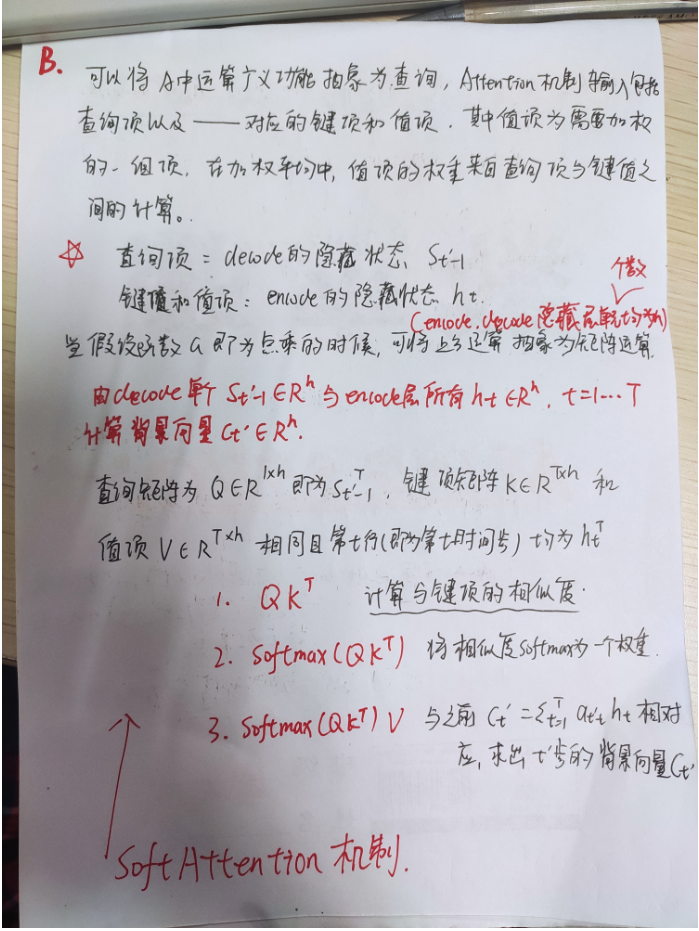 B. 可以将A中运算广义功能抽象为查询，Attention机制输入包括
查询项以及一一对应的键项和值项．其中值项为需要加权
的一组项．在加权平均中，值项的权重来自查询项与键值之
间的计算。
☆ 查询项：decode的隐藏状态 St'-1
个数
键值和值项：encode的隐藏状态 ht.
(encode.decode隐藏层单元均为h)
当假设函数a即为点乘的时候，可将上多运算抽象为矩阵运算.
由decode单个 St'-1∈Rʰ 与encode层所有 ht∈Rʰ. t=1...T
计算背景向量 Ct'∈Rʰ.
查询矩阵为 Q∈R¹ˣʰ 即为 St'-1ᵀ．键项矩阵 K∈Rᵀˣʰ 和
值项 V∈Rᵀˣʰ 相同且第t行(即为第t时间步)均为 htᵀ
1. QKᵀ 计算与键项的相似度.
2. Softmax(QKᵀ) 将相似度softmax为一个权重.
3. Softmax(QKᵀ)V 与之前 Ct'=Σᵀt=1 at't ht 相对
应，求出t'步的背景向量Ct'
Soft Attention 机制.